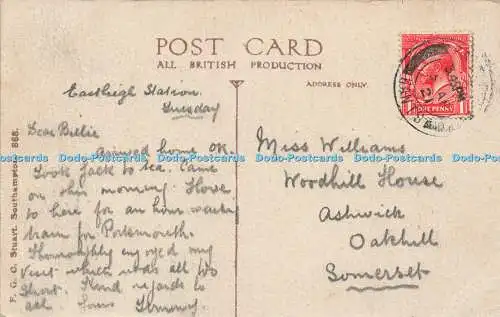 POST CARD
ALL BRITISH PRODUCTION
ADDRESS ONLY.
ONE PENNY
Eastleigh Station.
Tuesday
Dear Billie
Arrived home OK.
Took Jack to tea. Came
on this morning. Have
to here for an hour
train for Portsmouth.
Thoroughly enjoyed my
visit which was all too
short. Kind regards to
all. Yours
Miss Williams
Woodhill House
Ashwick
Oakhill
Somerset
F. G. O. Stuart. Southampton. 868.
Dodo-Postcards Dodo-Postcards Dodo-Postcards Dodo-Postcards Dodo-Postcards